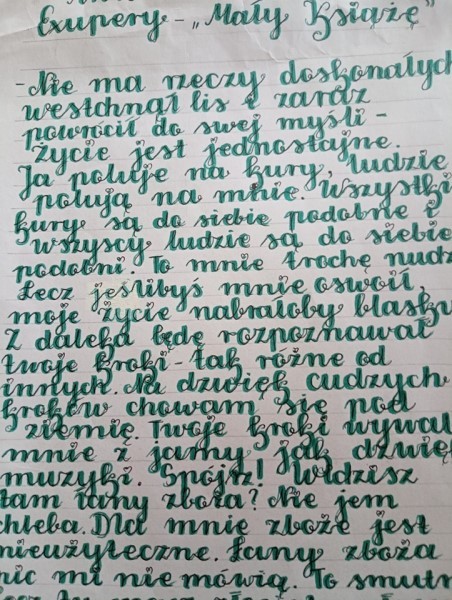 Exupery - „Mały Książę”
-Nie ma rzeczy doskonałych
westchnął lis i zaraz
powrócił do swej myśli -
życie jest jednostajne.
Ja poluję na kury, ludzie
polują na mnie. Wszystki
kury są do siebie podobne i
wszyscy ludzie są do siebie
podobni. To mnie trochę nudz
Lecz jeślibyś mnie oswoił,
moje życie nabrałoby blasku
Z daleka będę rozpoznawał
twoje kroki - tak różne od
innych. Na dźwięk cudzych
kroków chowam się pod
ziemię. Twoje kroki wywał
mnie z jamy jak dźwię
muzyki. Spójrz! Widzisz
tam łany zboża? Nie jem
chleba. Dla mnie zboże jest
nieużyteczne. Łany zboża
nic mi nie mówią. To smutn